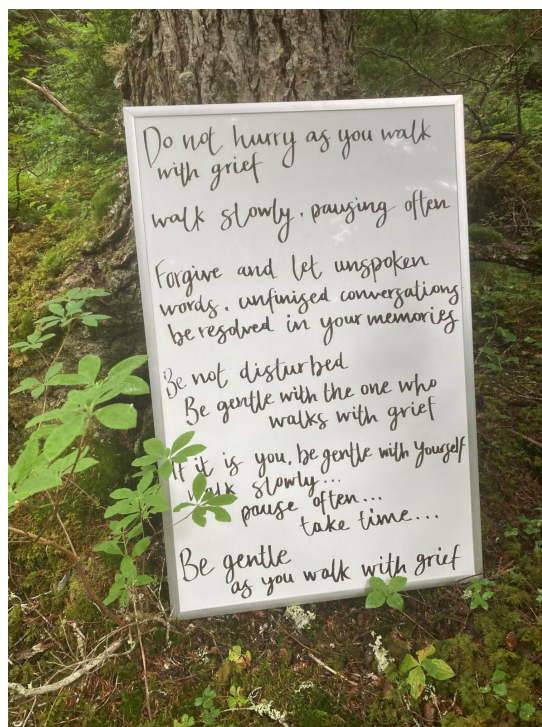 Do not hurry as you walk
with grief
walk slowly, pausing often
Forgive and let unspoken
words, unfinised conversations
be resolved in your memories
Be not disturbed
Be gentle with the one who
walks with grief
If it is you, be gentle with yourself
walk slowly...
pause often...
take time...
Be gentle
as you walk with grief